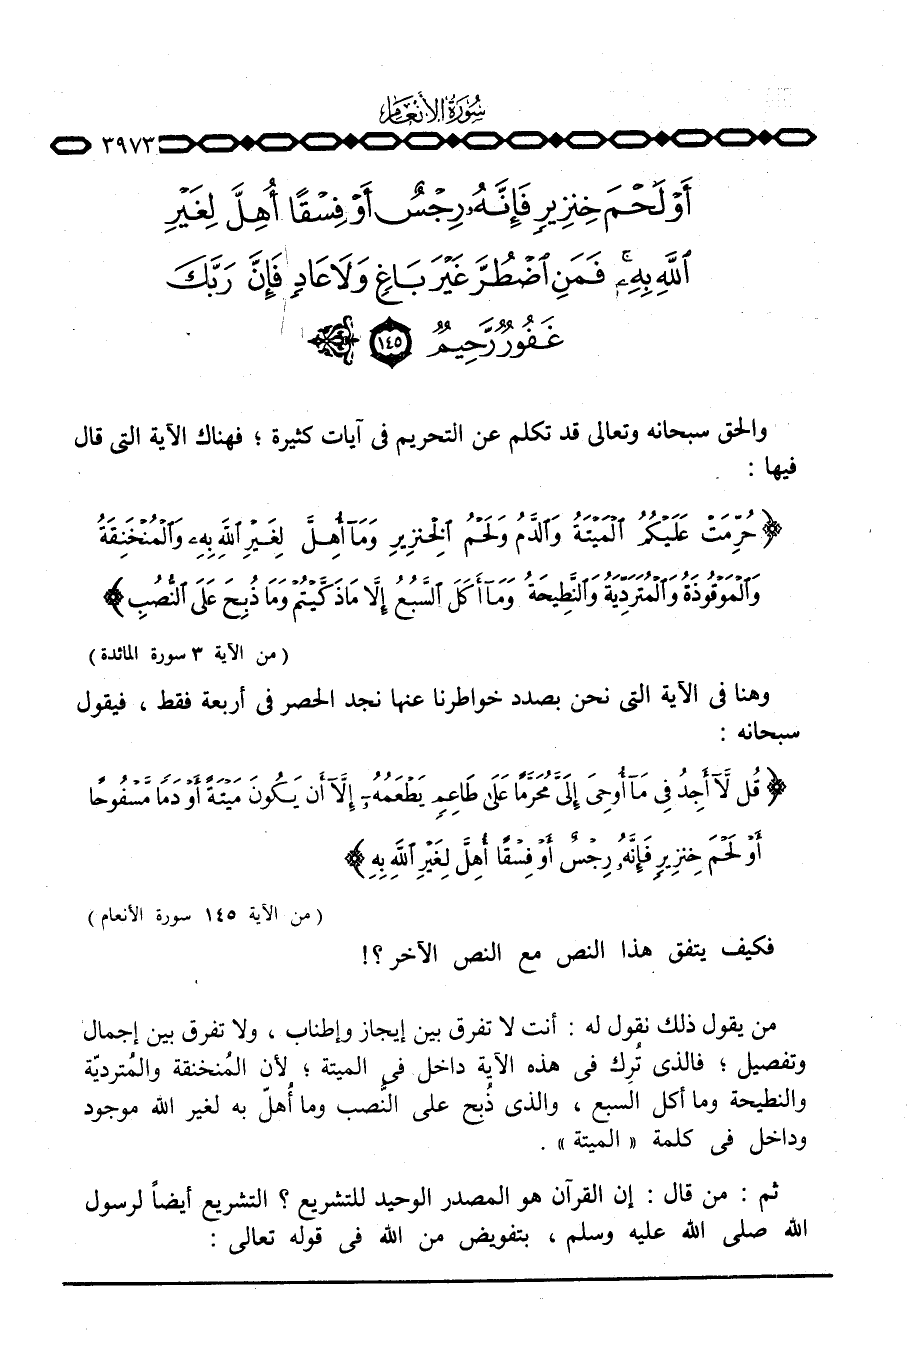 سُورَةُ الأنعَام
٣٩٧٣
أَوْ لَحْمَ خِنزِيرٍ فَإِنَّهُۥ رِجْسٌ أَوْ فِسْقًا أُهِلَّ لِغَيْرِ
ٱللَّهِ بِهِۦۚ فَمَنِ ٱضْطُرَّ غَيْرَ بَاغٍ وَلَا عَادٍ فَإِنَّ رَبَّكَ
غَفُورٌ رَّحِيمٌ ١٤٥
والحق سبحانه وتعالى قد تكلم عن التحريم فى آيات كثيرة ؛ فهناك الآية التى قال
فيها :
﴿ حُرِّمَتْ عَلَيْكُمُ ٱلْمَيْتَةُ وَٱلدَّمُ وَلَحْمُ ٱلْخِنزِيرِ وَمَآ أُهِلَّ لِغَيْرِ ٱللَّهِ بِهِۦ وَٱلْمُنْخَنِقَةُ
وَٱلْمَوْقُوذَةُ وَٱلْمُتَرَدِّيَةُ وَٱلنَّطِيحَةُ وَمَآ أَكَلَ ٱلسَّبُعُ إِلَّا مَا ذَكَّيْتُمْ وَمَا ذُبِحَ عَلَى ٱلنُّصُبِ ﴾
( من الآية ٣ سورة المائدة )
وهنا فى الآية التى نحن بصدد خواطرنا عنها نجد الحصر فى أربعة فقط ، فيقول
سبحانه :
﴿ قُل لَّآ أَجِدُ فِى مَآ أُوحِىَ إِلَىَّ مُحَرَّمًا عَلَىٰ طَاعِمٍ يَطْعَمُهُۥٓ إِلَّآ أَن يَكُونَ مَيْتَةً أَوْ دَمًا مَّسْفُوحًا
أَوْ لَحْمَ خِنزِيرٍ فَإِنَّهُۥ رِجْسٌ أَوْ فِسْقًا أُهِلَّ لِغَيْرِ ٱللَّهِ بِهِ ﴾
( من الآية ١٤٥ سورة الأنعام )
فكيف يتفق هذا النص مع النص الآخر ؟!
من يقول ذلك نقول له : أنت لا تفرق بين إيجاز وإطناب ، ولا تفرق بين إجمال
وتفصيل ؛ فالذى تُرِك فى هذه الآية داخل فى الميتة ؛ لأن المُنخنقة والمُترديّة
والنطيحة وما أكل السبع ، والذى ذُبح على النُّصب وما أُهلّ به لغير الله موجود
وداخل فى كلمة « الميتة » .
ثم : من قال : إن القرآن هو المصدر الوحيد للتشريع ؟ التشريع أيضاً لرسول
الله صلى الله عليه وسلم ، بتفويض من الله فى قوله تعالى :